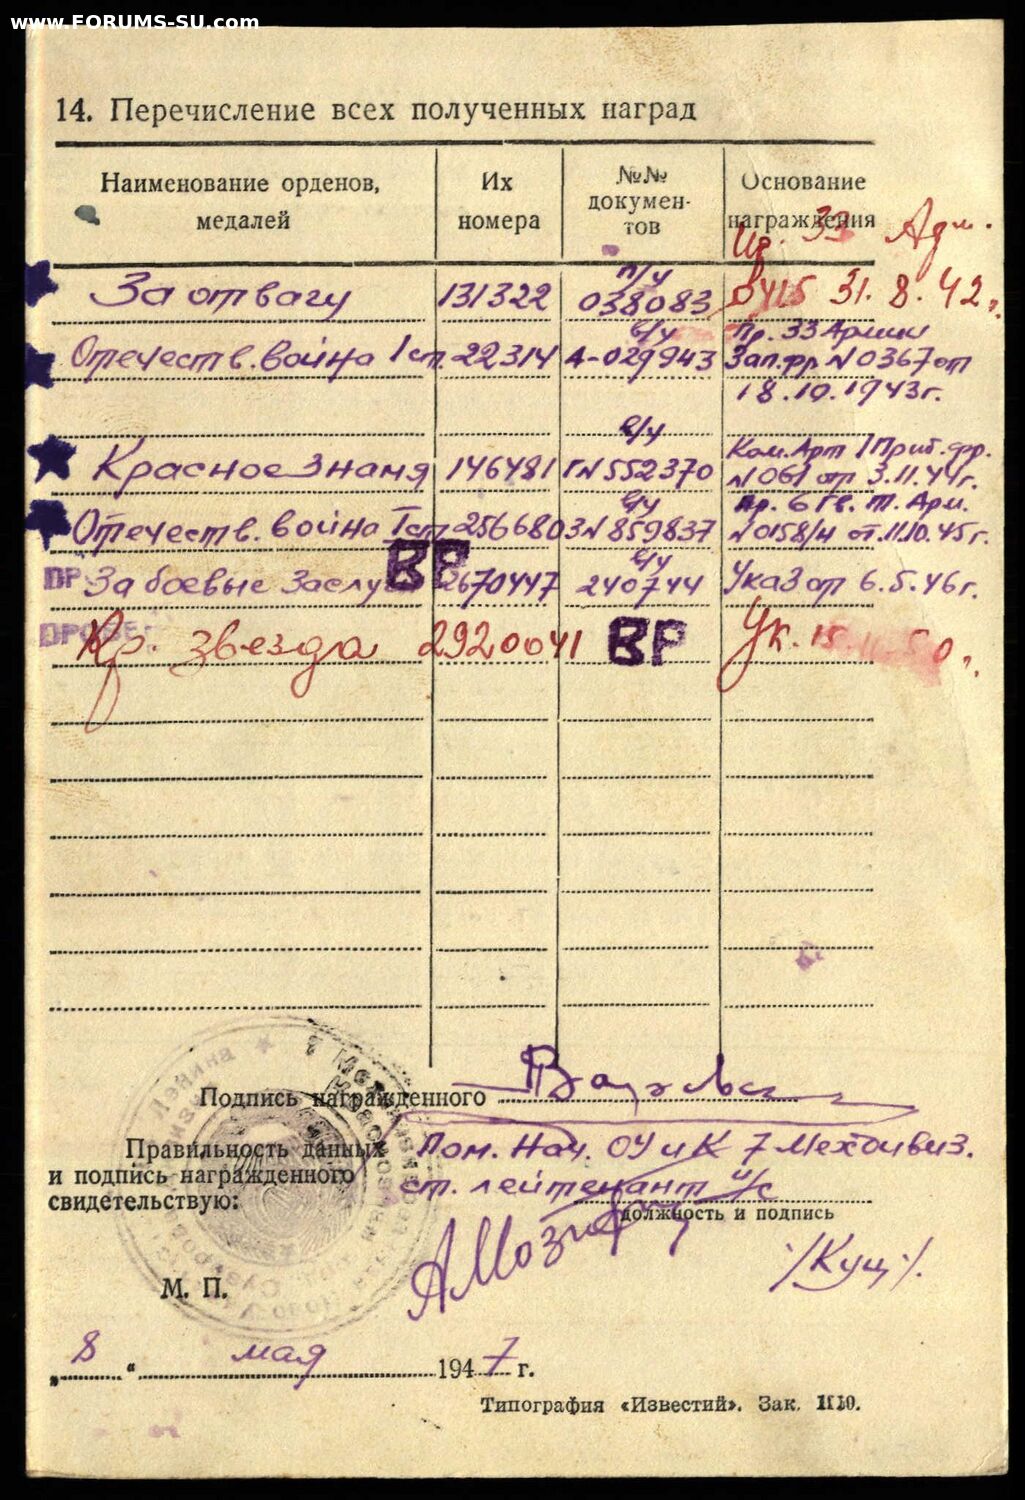 www.FORUMS-SU.com
14. Перечисление всех полученных наград
Наименование орденов, медалей
Их номера
№№ докумен-
тов
Основание награждения
Пр. 33 Арм.
За отвагу 131322 п/у 038083 0415 31.8.42г.
Отечеств. война I ст. 22314 в/у А-029943 Пр. 33 Армии
Зап.фр. N 0367 от
18.10.1943г.
Красное Знамя 146481 в/у ГN 552370 Ком. Арт 1 Приб. фр.
N 061 от 3.11.44г.
Отечеств. война I ст. 256680 в/у ЗN 859837 Пр. 6 Гв. т. Арм.
N 0158/н от 11.10.45г.
За боевые Заслу 2670447 в/у 240744 Указ от 6.5.46г.
ВР
Кр. звезда 2920041 ВР Ук. 15. 50г.
Подпись награжденного
Правильность данных Пом. Нач. ОУ и К 7 Мех дивиз.
и подпись награжденного ст. лейтенант и/с
свидетельствую:
должность и подпись
/Кущ/.
М. П.
„ 8 “ мая 1947 г.
Типография «Известий». Зак. 1110.